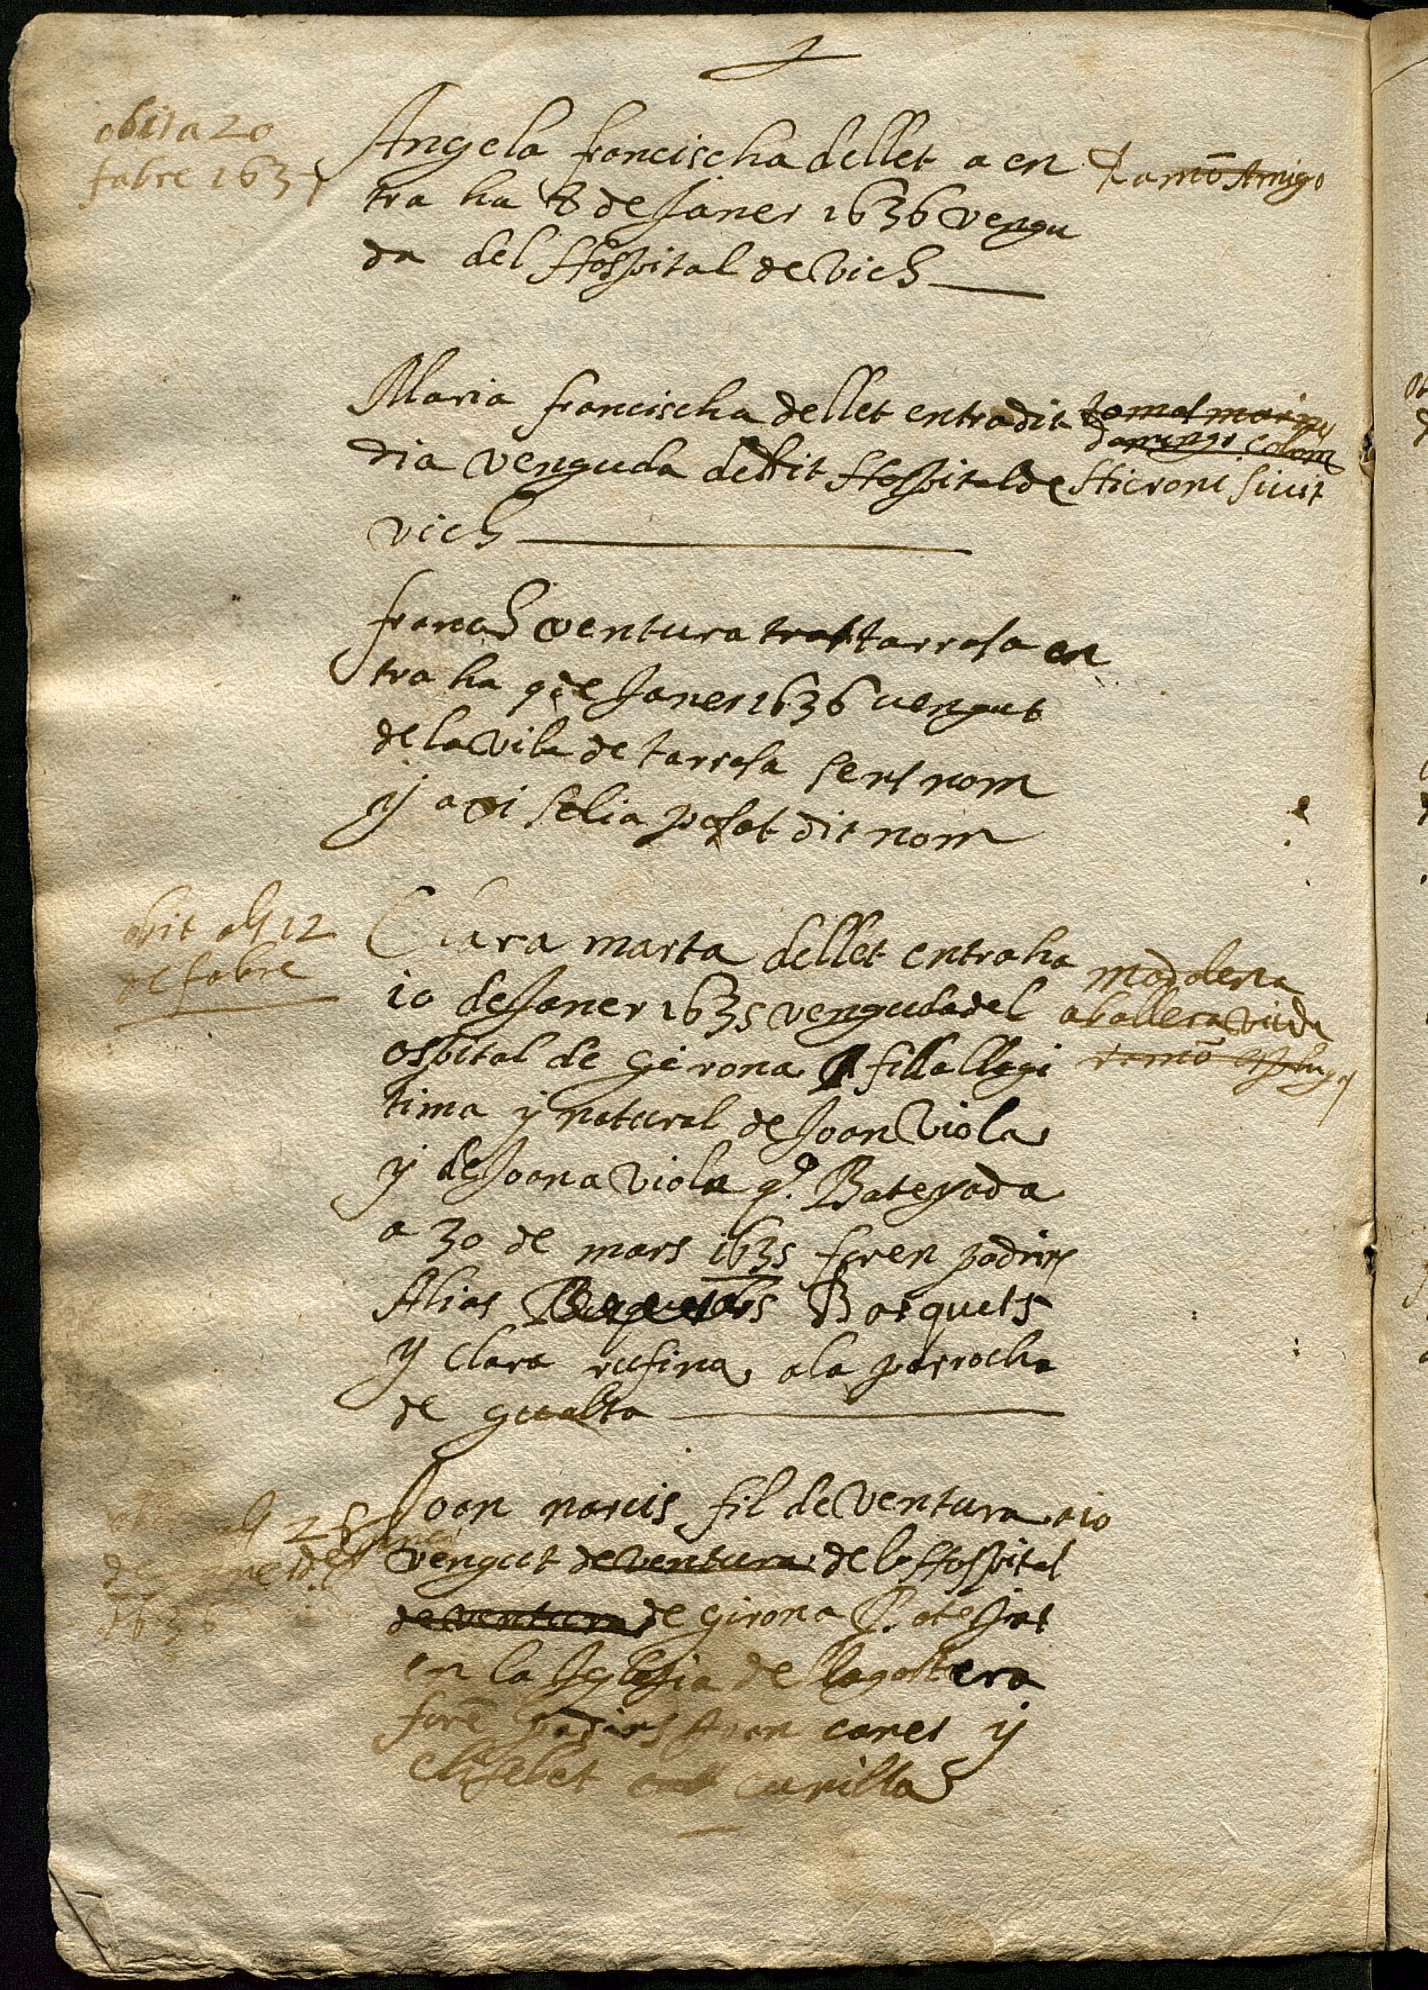 obit a 20
fabre 1637
Angela francischa de llet a en
tra ha 8 de Janer 1636 vengu
da del Hospital de Vich
Ramō Amigo
Maria francischa de llet entra dit
dia venguda de dit Hospital de
vich
tomas
domingo colom
Hieroni
franch ventura tarrasa en
tra ha 9 de Janer 1636 vengut
de la vila de tarrasa sens nom
y axi se lia posat dit nom
obit als 12
de fabre
Clara marta de llet entra ha
10 de Janer 1635 venguda del
ospital de Girona filla llegi
tima y natural de Joan Viola
y de Joana Viola q.º Bateyada
a 30 de mars 1635 foren padrins
Alias Barquets
y Clara rufina a la parrocha
de gualta
madalena
aballera viuda
ramō
als 28
de Janer
1636
Joan narcis fil de Ventura
vengut de ventura de lo Hospital
de ventura de Girona
en la Iglesia de llagostera
forē padrins Joan canet y
Elisebet